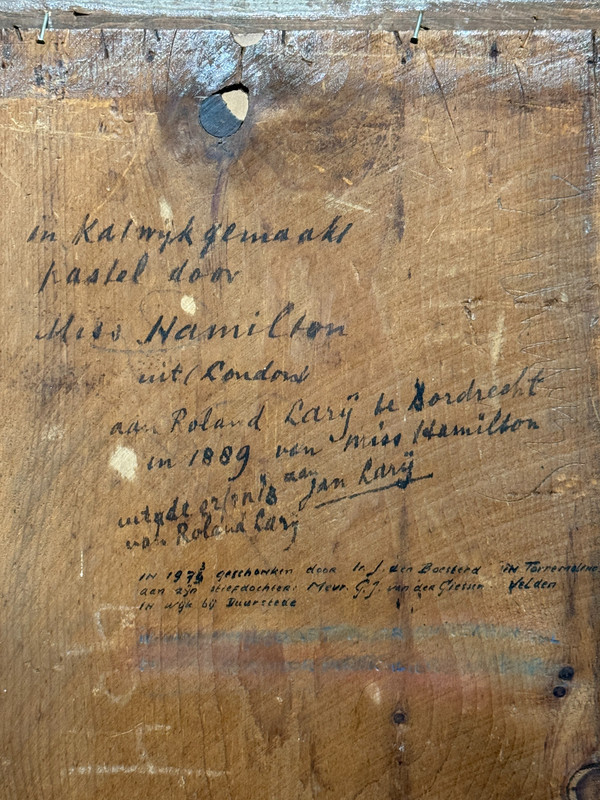 in Katwijk gemaakt
pastel door
Miss Hamilton
uit (London)
aan Roland Larÿ te Dordrecht
in 1889 van Miss Hamilton
uit de erfenis aan Jan Larÿ
van Roland Larÿ
IN 1975 geschonken door Ir. J. den Boesterd IN Torremolinos
aan zijn stiefdochter: Mevr. G.J. van der Giessen Velden
IN wijk bij Duurstede